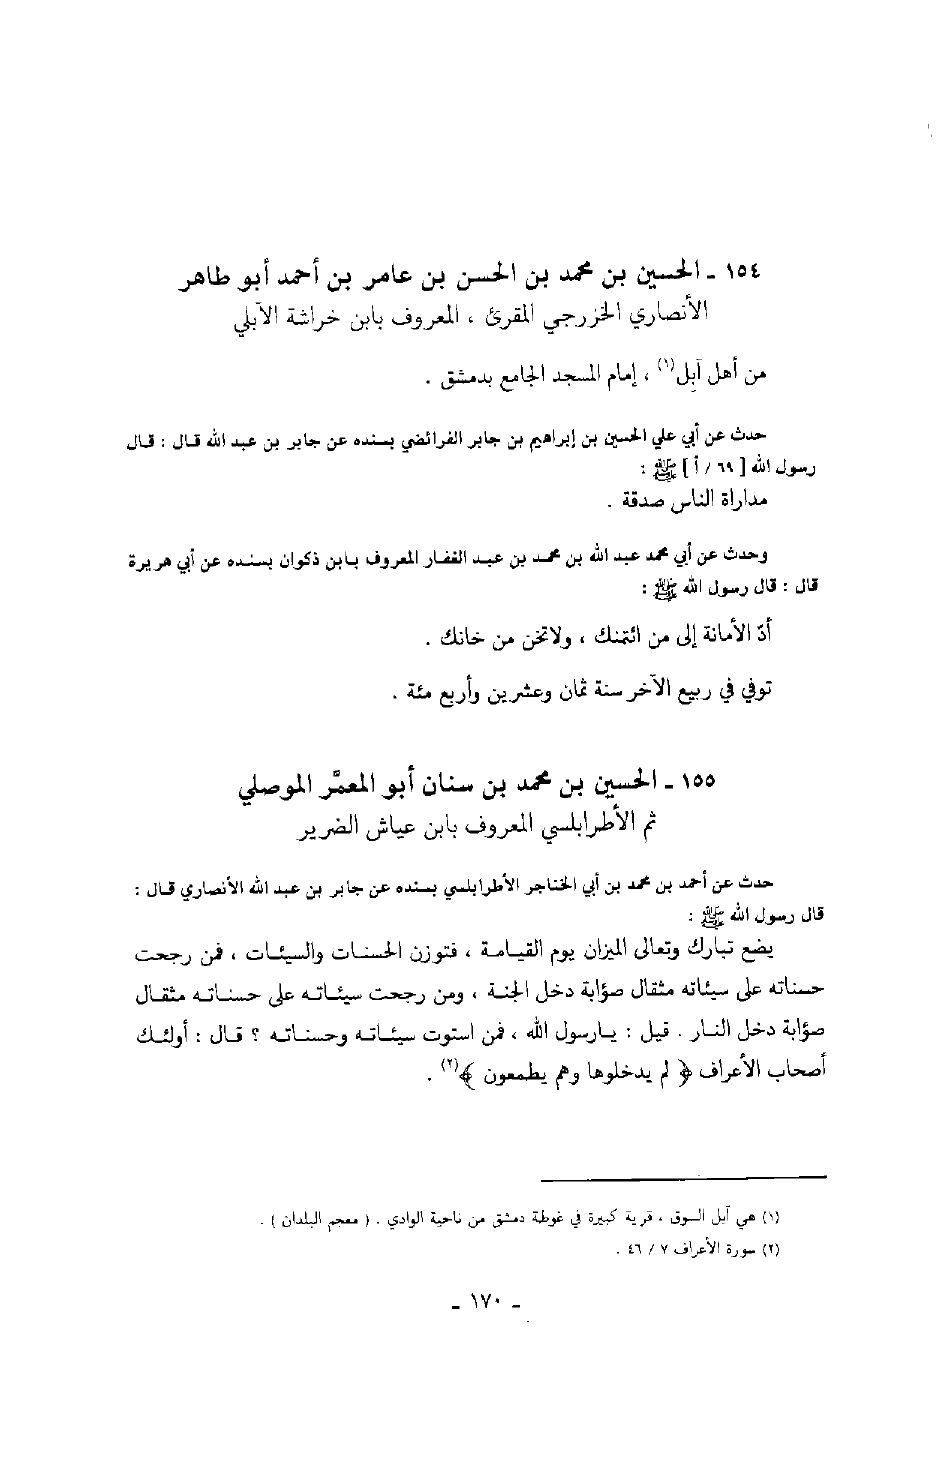 ١٥٤ - الحسين بن محمد بن الحسن بن عامر بن أحمد أبو طاهر
الأنصاري الخزرجي المقرئ ، المعروف بابن خراشة الآبلي
من أهل آبل(١) ، إمام المسجد الجامع بدمشق .
حدث عن أبي علي الحسين بن إبراهيم بن جابر الفرائضي بسنده عن جابر بن عبد الله قال : قال
رسول الله [ ٦٩ / أ ] ﷺ :
مداراة الناس صدقة .
وحدث عن أبي محمد عبد الله بن محمد بن عبد الغفار المعروف بابن ذكوان بسنده عن أبي هريرة
قال : قال رسول الله ﷺ :
أدّ الأمانة إلى من ائتمنك ، ولاتخن من خانك .
توفي في ربيع الآخر سنة ثمان وعشرين وأربع مئة .
١٥٥ - الحسين بن محمد بن سنان أبو المعمَّر الموصلي
ثم الأطرابلسي المعروف بابن عياش الضرير
حدث عن أحمد بن محمد بن أبي الخناجر الأطرابلسي بسنده عن جابر بن عبد الله الأنصاري قال :
قال رسول الله ﷺ :
يضع تبارك وتعالى الميزان يوم القيامة ، فتوزن الحسنات والسيئات ، فمن رجحت
حسناته على سيئاته مثقال صؤابة دخل الجنة ، ومن رجحت سيئاته على حسناته مثقال
صؤابة دخل النار . قيل : يارسول الله ، فمن استوت سيئاته وحسناته ؟ قال : أولئك
أصحاب الأعراف ﴿ لم يدخلوها وهم يطمعون ﴾(٢) .
(١) هي آبل السوق ، قرية كبيرة في غوطة دمشق من ناحية الوادي . ( معجم البلدان ) .
(٢) سورة الأعراف ٧ / ٤٦ .
- ١٧٠ -